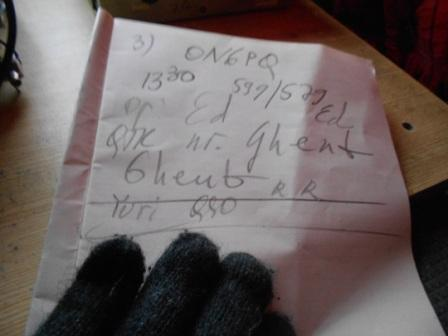 3) ON6PQ
1330 599/579
op Ed Ed
QTH nr. Ghent
Ghent R R
Yuri QSO